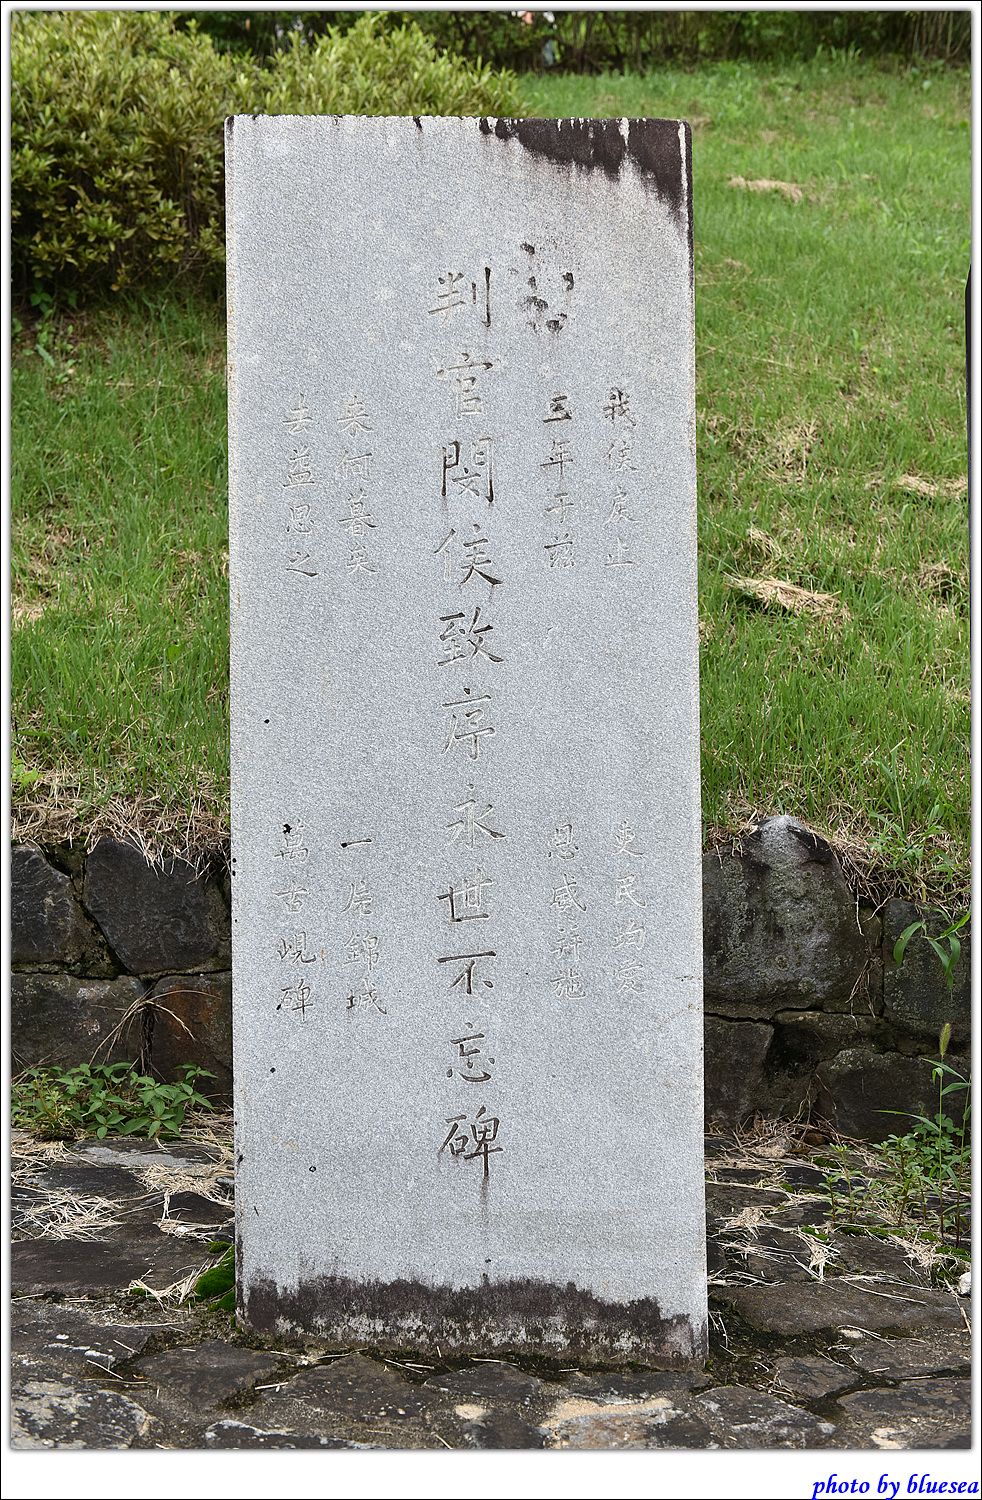 我侯戾止 吏民均愛
五年于茲 恩威并施
判官閔侯致序永世不忘碑
來何暮矣 一片錦城
去益思之 萬古峴碑
photo by bluesea